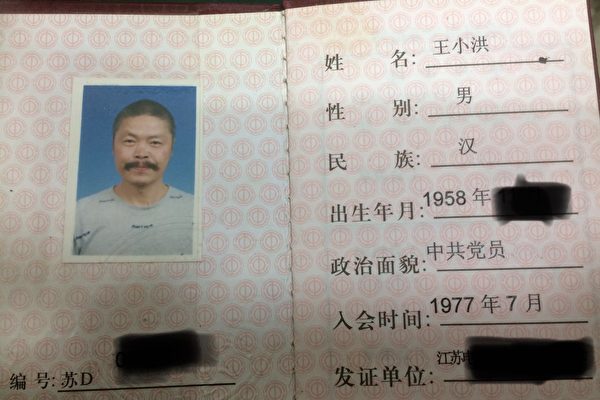 姓名: 王小洪
性别: 男
民族: 汉
出生年月: 1958 年
政治面貌: 中共党员
入会时间: 1977 年 7 月
发证单位: 江苏
编号: 苏D